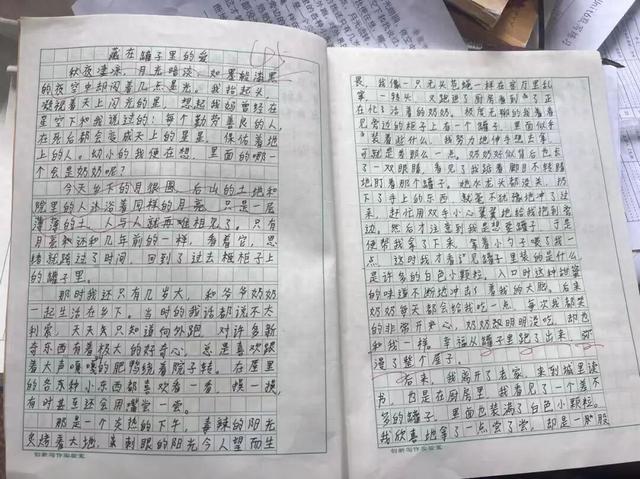 藏在罐子里的爱
秋夜凄凉，月光暗淡，如墨般漆黑
的夜空中却闪着几点星光。我抬起头，
凝视着天上闪光的星，想起我妈曾经在
星空下和我说过的：每个勤劳善良的人，
在死后都会变成天上的星星，保佑着地
上的人。幼小的我便在想，里面的哪一
个会是奶奶呢？
今天乡下的月很圆，后山的土地和
院里的人沐浴着同样的月亮，只是一层
薄薄的土，人与人就再难相见了。只有
月亮和还和几年前的一样，看着它，思
绪就跨过了时间，回到了过去柜上
的罐子里。
那时我还只有几岁大，和爷爷奶奶
一起生活在乡下。当时的我话都说不大
利索，天天只知道向外跑，对许多新
奇东西有着极大的好奇心，总是喜欢跟
着大声嘎嘎的肥鸭绕着院子转。在屋里
的各东种小东西都喜欢看一看，摸一摸，
有时甚至还会用嘴尝一尝。
那是一个炎热的下午，毒辣的阳光
炙烤着大地，刺眼的阳光令人望而生
畏，我像一只无头苍蝇一样在客厅里乱
窜，一转头，又跑进了厨房看到了正
在忙活着的奶奶。极度无聊的我看着
见旁边的柜子上有一个罐子，里面似乎
装着些什么，我努力地伸手想去拿，
可就是差那么一点。奶奶好似背后也长
了一双眼睛，看见了我踮着脚目不转睛
地盯着那个罐子。她水龙头都没关，扔
下了手上的东西，就毫不犹豫地冲了过
来，赶忙用双手小心翼翼地把我抱到旁
边。然后才注意到我是想要罐子，于是
便帮我拿了下来，拿着小勺子喂了我一
点。这时我才看了罐子里装的是什么，
是许多的白色小颗粒，入口时这种甜蜜
的味道不断地冲击着我的大脑。后来的
奶奶每天都会给我吃一点，每次我都笑
的非常开心，奶奶放明明没吃，却也
和我一样。幸福从罐子里跑了出来，弥
漫了整个屋子。
后来，我离开了老家，来到城里读
书，也是在厨房里，我看见了一个差不
多的罐子，里面也装满了白色小颗粒。
我欣喜地拿了一点尝了尝，却是一股
创新写作实验室
创新写作实验室